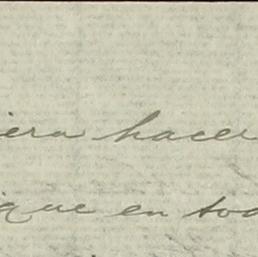 iera hacer
que en tod